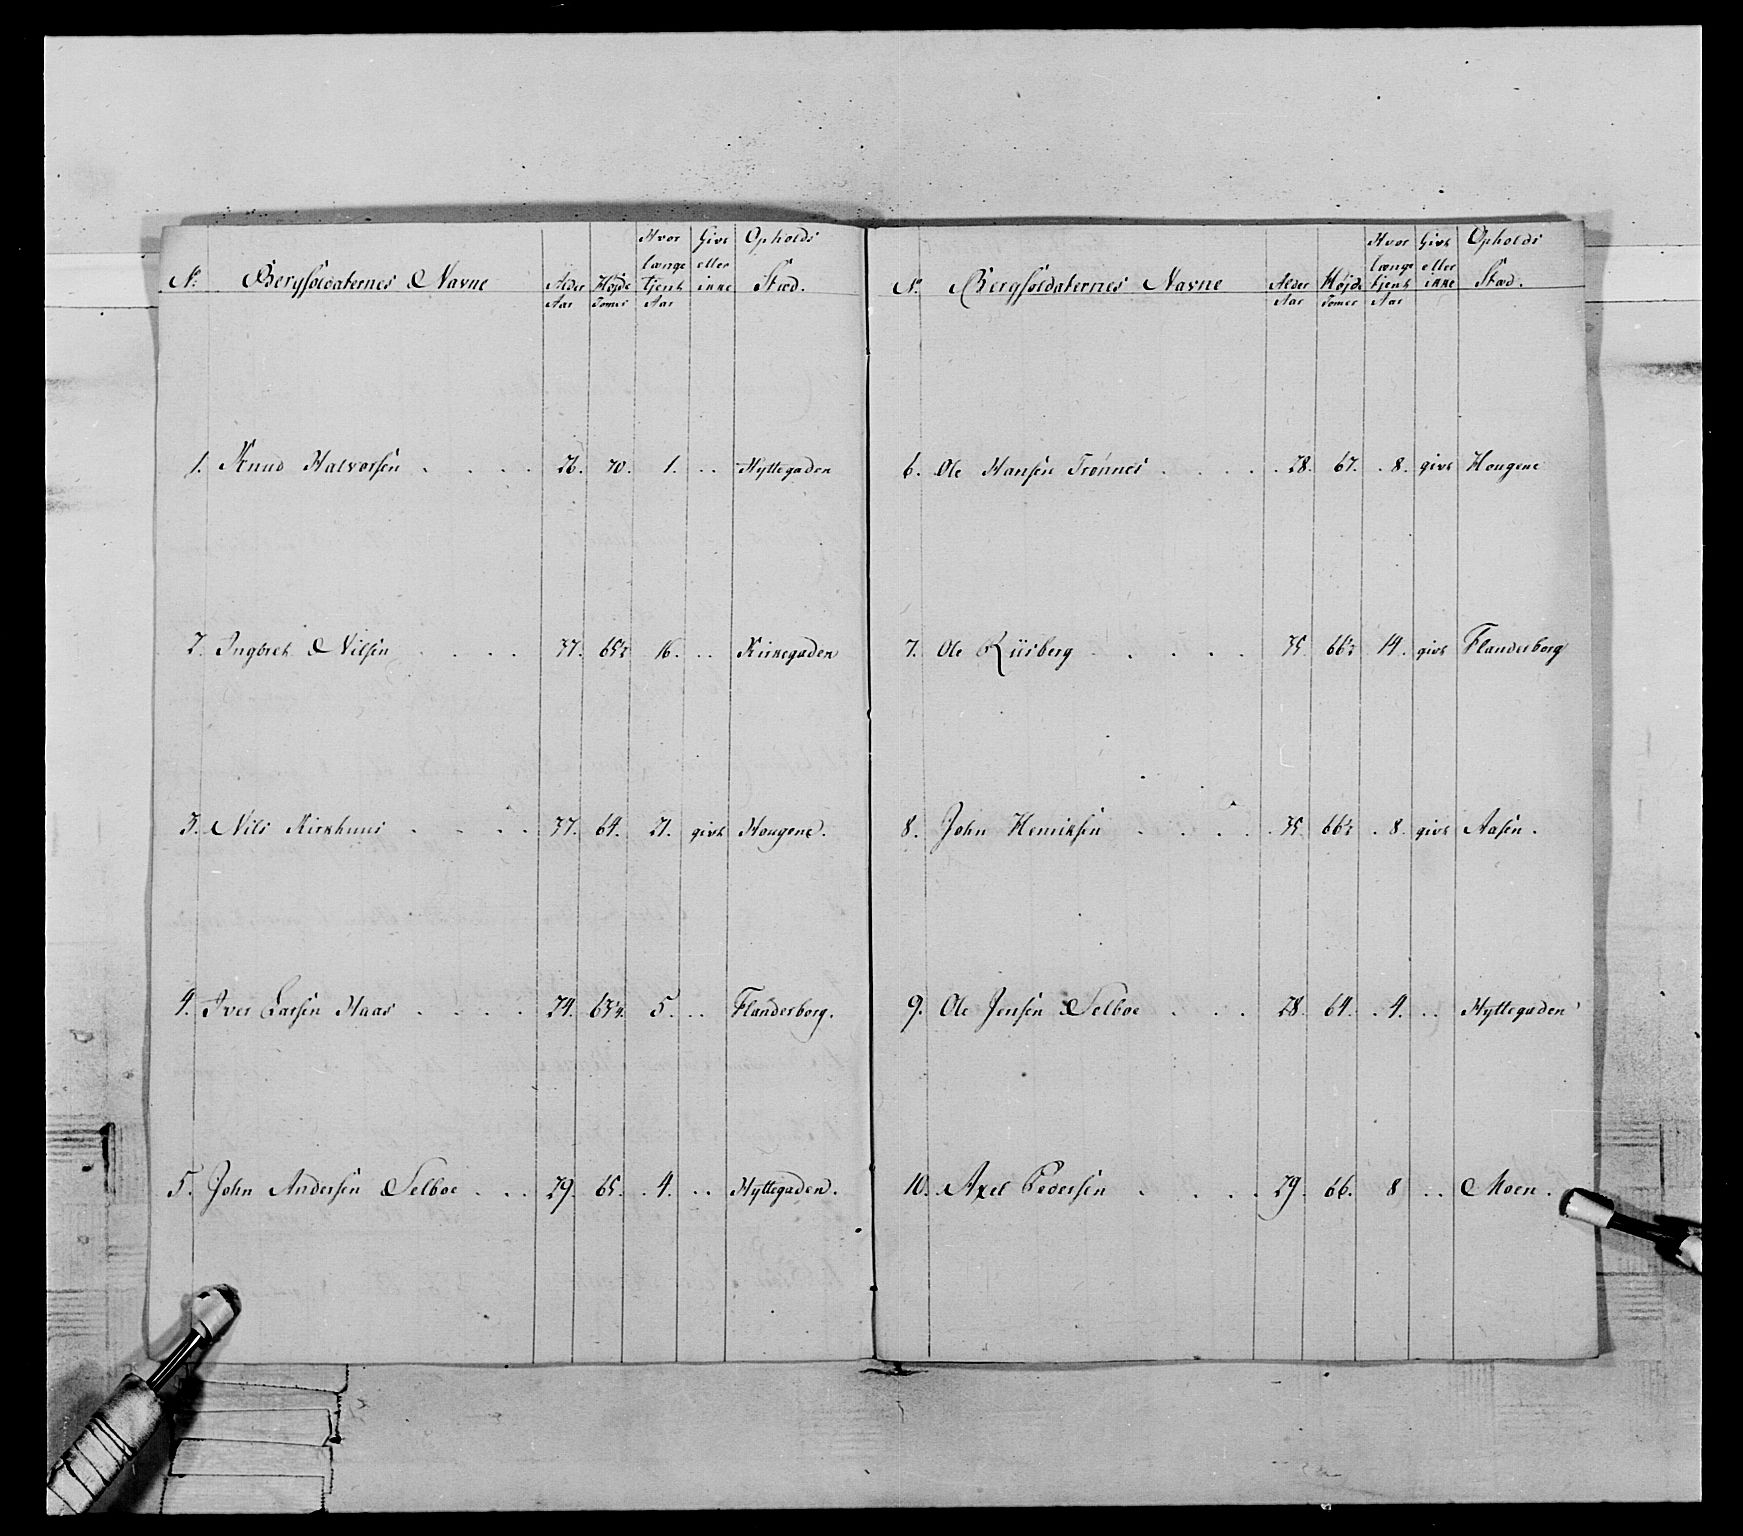 Hvor Givt Opholds
længe eller
No Bergsoldaternes Navne Alder Højde tjent ikke Stæd.
Aar Tomer Aar
1. Knud Halvorsen . . . . 26. 70. 1. . . Hyttegaden
2. Ingbret Nilsen . . . . 37. 65½ 16. . . Kirkegaden
3. Nils Kirkhuus . . . . 37. 64. 21. givt Hougene.
4. Iver Larsen Haas . . . . 24. 5. . . Flanderborg.
5. John Andersen Selboe . . . 29. 65. . 4. . . Hyttegaden.
Hvor Givt Opholds
længe eller
No Bergsoldaternes Navne Alder Højde tjent ikke Stæd.
Aar Tomer Aar
6. Ole Hansen Trønnes . . . . 28. 67. . 8. givt Hougene
7. Ole Riisberg . . . . . 35. 66½ 14. givt Flanderborg
8. John Henriksen . . . . 35. 66½ . 8. givt Aasen.
9. Ole Jensen Selboe . . . 28. 64. . 4. . . Hyttegaden
10. Axel Pedersen . . . . 29. 66. 8 . . Moen.